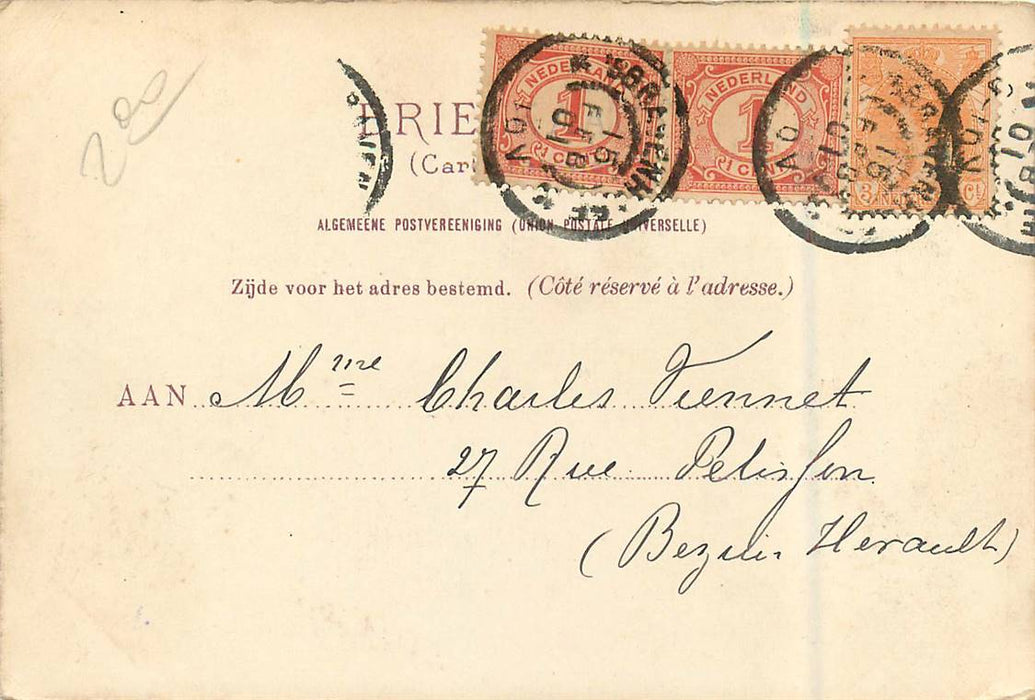 200
NEDERLAND
1
1 CENT
NEDERLAND
1
1 CENT
3 Ct
15 FEB 01
BRIE
(Car
ALGEMEENE POSTVEREENIGING (UNION POSTALE UNIVERSELLE)
Zijde voor het adres bestemd. (Côté réservé à l'adresse.)
AAN Mme Charles Viennet
27 Rue Pelisson
(Beziers Herault)